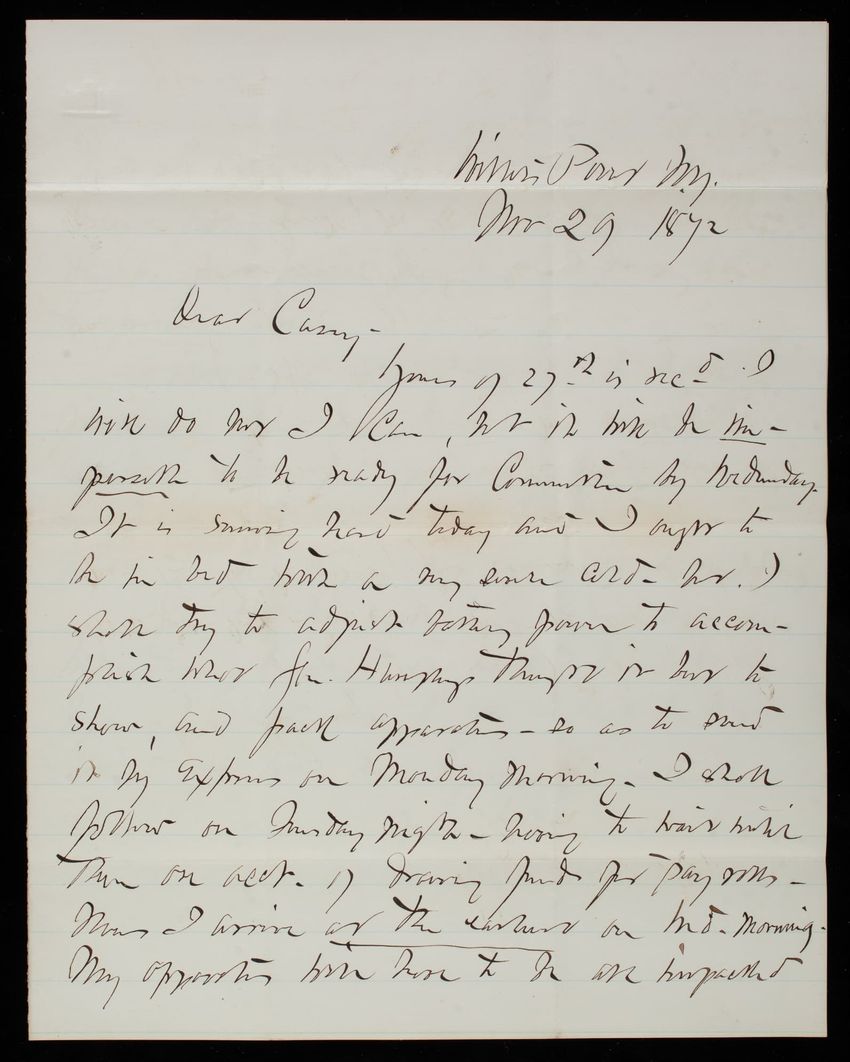 Willets Point N.Y.
Nov 29 1872
Dear Casey -
Yours of 27th is recd. I
will do what I can, but it will be im-
possible to be ready for Committee by Wednesday.
It is snowing hard today and I ought to
be in bed with a very severe cold - but I
shall try to adjust battery power to accom-
plish what Gen. Humphreys thought it best to
show, and pack apparatus - so as to send
it by Express on Monday morning. I shall
follow on Tuesday night - having to wait until
then on acct. of drawing funds for pay rolls -
Thus I arrive at the earliest on Wed. morning.
My apparatus will have to be all unpacked